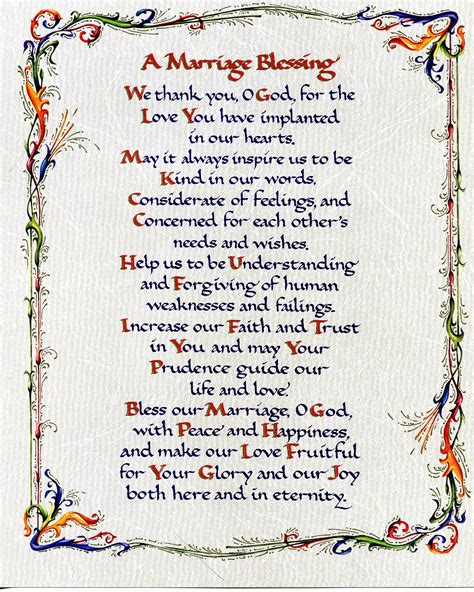 A Marriage Blessing
We thank you, O God, for the
Love You have implanted
in our hearts.
May it always inspire us to be
Kind in our words,
Considerate of feelings, and
Concerned for each other's
needs and wishes.
Help us to be Understanding
and Forgiving of human
weaknesses and failings.
Increase our Faith and Trust
in You and may Your
Prudence guide our
life and love.
Bless our Marriage, O God,
with Peace and Happiness,
and make our Love Fruitful
for Your Glory and our Joy
both here and in eternity.